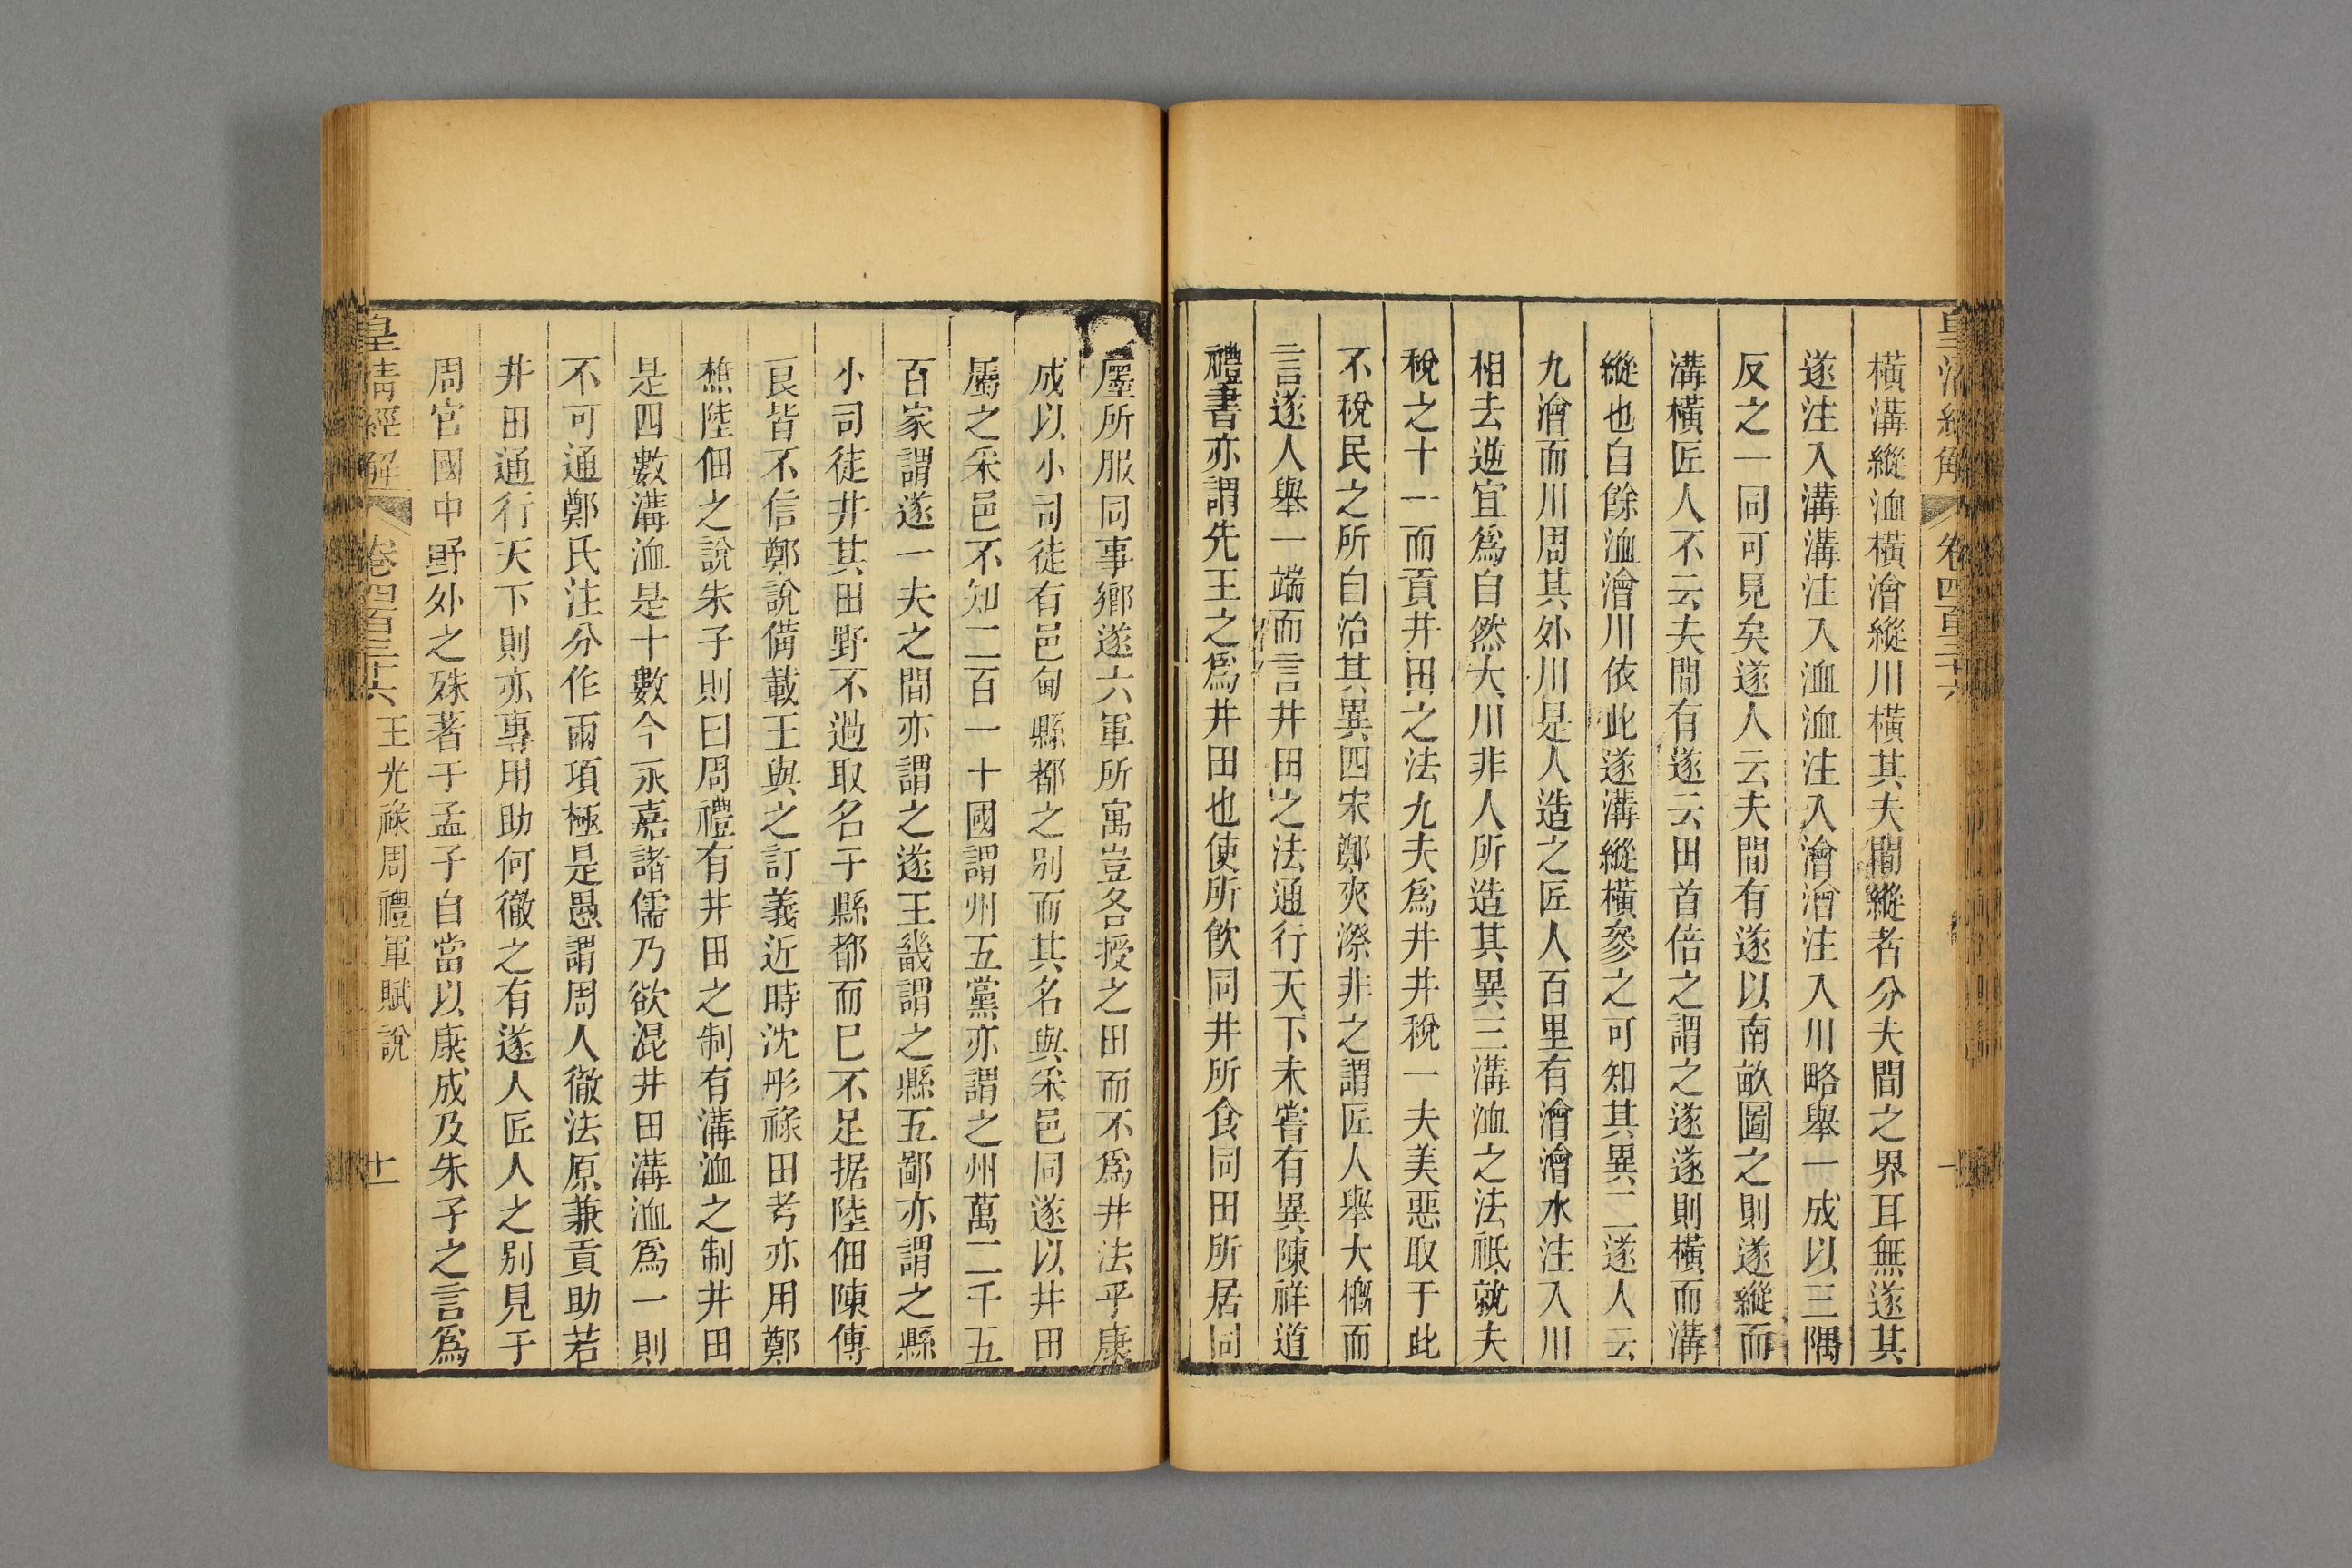 皇清經解
卷四百三十六
橫溝縱洫橫澮縱川橫其夫間縱者分夫間之界耳無遂其
遂注入溝溝注入洫洫注入澮澮注入川略舉一成以三隅
反之一同可見矣遂人云夫間有遂以南畝圖之則遂縱而
溝橫匠人不云夫間有遂云田首倍之謂之遂遂則橫而溝
縱也自餘洫澮川依此遂溝縱橫參之可知其異二遂人云
九澮而川周其外川是人造之匠人百里有澮澮水注入川
相去逆宜爲自然大川非人所造其異三溝洫之法祗就夫
稅之十一而貢井田之法九夫爲井井稅一夫美惡取于此
不稅民之所自治其異四宋鄭夾漈非之謂匠人舉大槪而
言遂人舉一端而言井田之法通行天下未嘗有異陳祥道
禮書亦謂先王之爲井田也使所飮同井所食同田所居同
廛所服同事鄉遂六軍所寓豈各授之田而不爲井法乎康
成以小司徒有邑甸縣都之别而其名與采邑同遂以井田
屬之采邑不知二百一十國謂州五黨亦謂之州萬二千五
百家謂遂一夫之間亦謂之遂王畿謂之縣五鄙亦謂之縣
小司徒井其田野不過取名于縣都而巳不足据陸佃陳傅
良皆不信鄭說備載王與之訂義近時沈彤祿田考亦用鄭
樵陸佃之說朱子則曰周禮有井田之制有溝洫之制井田
是四數溝洫是十數今永嘉諸儒乃欲混井田溝洫爲一則
不可通鄭氏注分作兩項極是愚謂周人徹法原兼貢助若
井田通行天下則亦專用助何徹之有遂人匠人之别見于
周官國中野外之殊著于孟子自當以康成及朱子之言爲
皇清經解
卷四百三十六
王光祿周禮軍賦說
十一